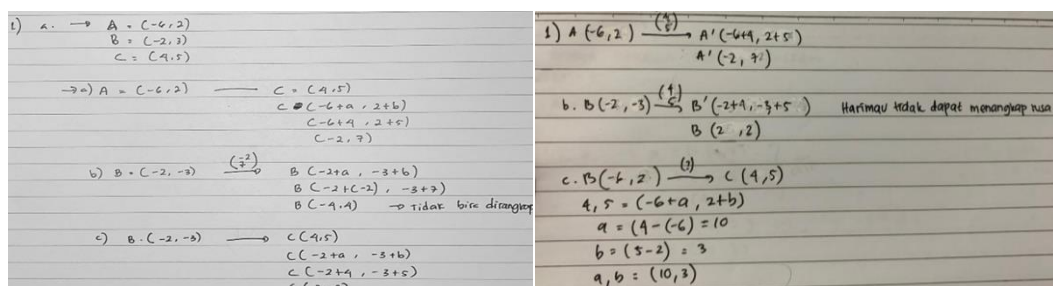 1) a. → A = (-6,2)
B = (-2,3)
C = (4.5)
→ a) A = (-6,2) — C = (4,5)
C (-6+a, 2+b)
(-6+4, 2+5)
(-2,7)
b) B = (-2,-3) (-2 7) → B (-2+a, -3+b)
B (-2+(-2), -3+7)
B (-4.4) → Tidak bisa ditangkap
c) B. (-2,-3) → C(4,5)
C(-2+a, -3+b)
C(-2+4, -3+5)
1) A (-6,2) (4 5) → A' (-6+4, 2+5)
A' (-2, 7)
b. B(-2,-3) (4 5) → B' (-2+4, -3+5) Harimau tidak dapat menangkap rusa
B (2, 2)
c. B(-6,2) → C (4,5)
4,5 = (-6+a, 2+b)
a = (4-(-6) = 10
b = (5-2) = 3
a,b = (10,3)